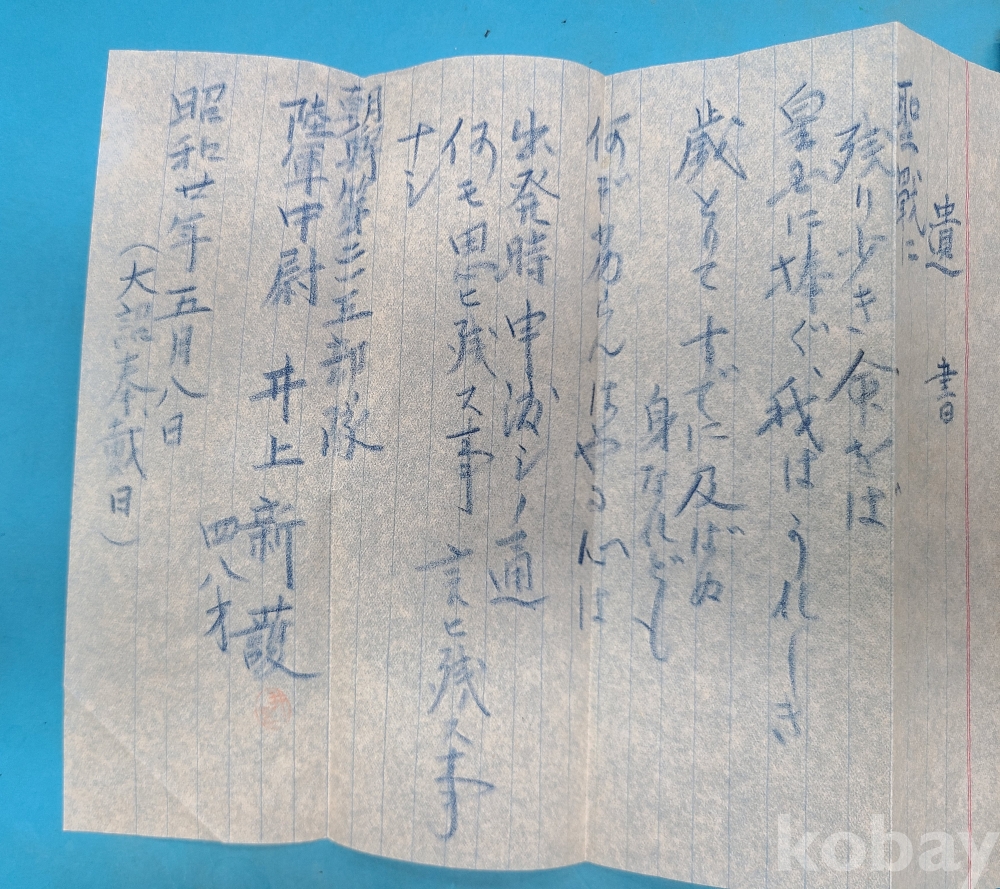 遺書
聖戦ニ
残り少き命をば
皇国に捧ぐ我はうれしき
歳とりてすでに及ばぬ
身なれども
何で劣らんはやる心は
出発時申渡シノ通
何モ思ヒ残ス事 言ヒ残ス事
ナシ
部隊
陸軍中尉 井上新護
四八才
昭和廿年五月八日
(大詔奉戴日)
kobay